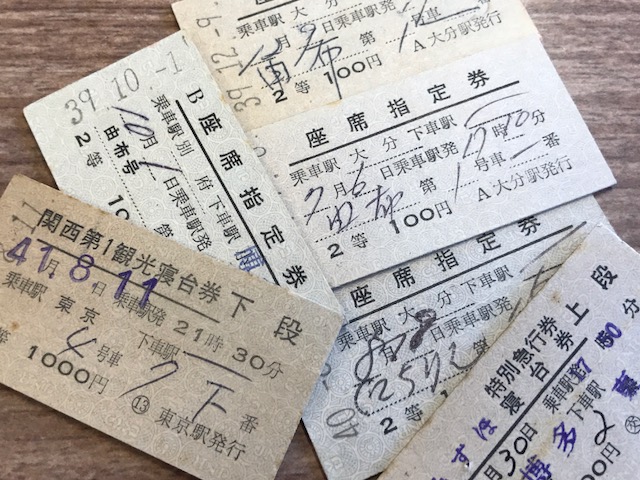 39.12.-9
乗車駅 大分
月 日乗車駅発 号車
由布 第
2等 100円 A大分駅発行
39.10.-1
B 座席指定券
乗車駅 別府 下車駅
10月1日乗車駅発
由布号
2等 10
座席指定券
乗車駅 大分 下車駅
7月6日乗車駅発 時 分
由布 第1号車 一番
2等 100円 A大分駅発行
座席指定券
乗車駅 大分 下車駅
日乗車駅発
2等 100円
40
関西第1観光寝台券 下段
41.8.11
月 日 乗車駅発 21時30分
乗車駅 東京 下車駅
等 4号車 7下番
1000円 ⑬ 東京駅発行
特別急行券
寝台券 上段
ずほ
月30日 乗車駅発 7 50分
博多 下車駅
2